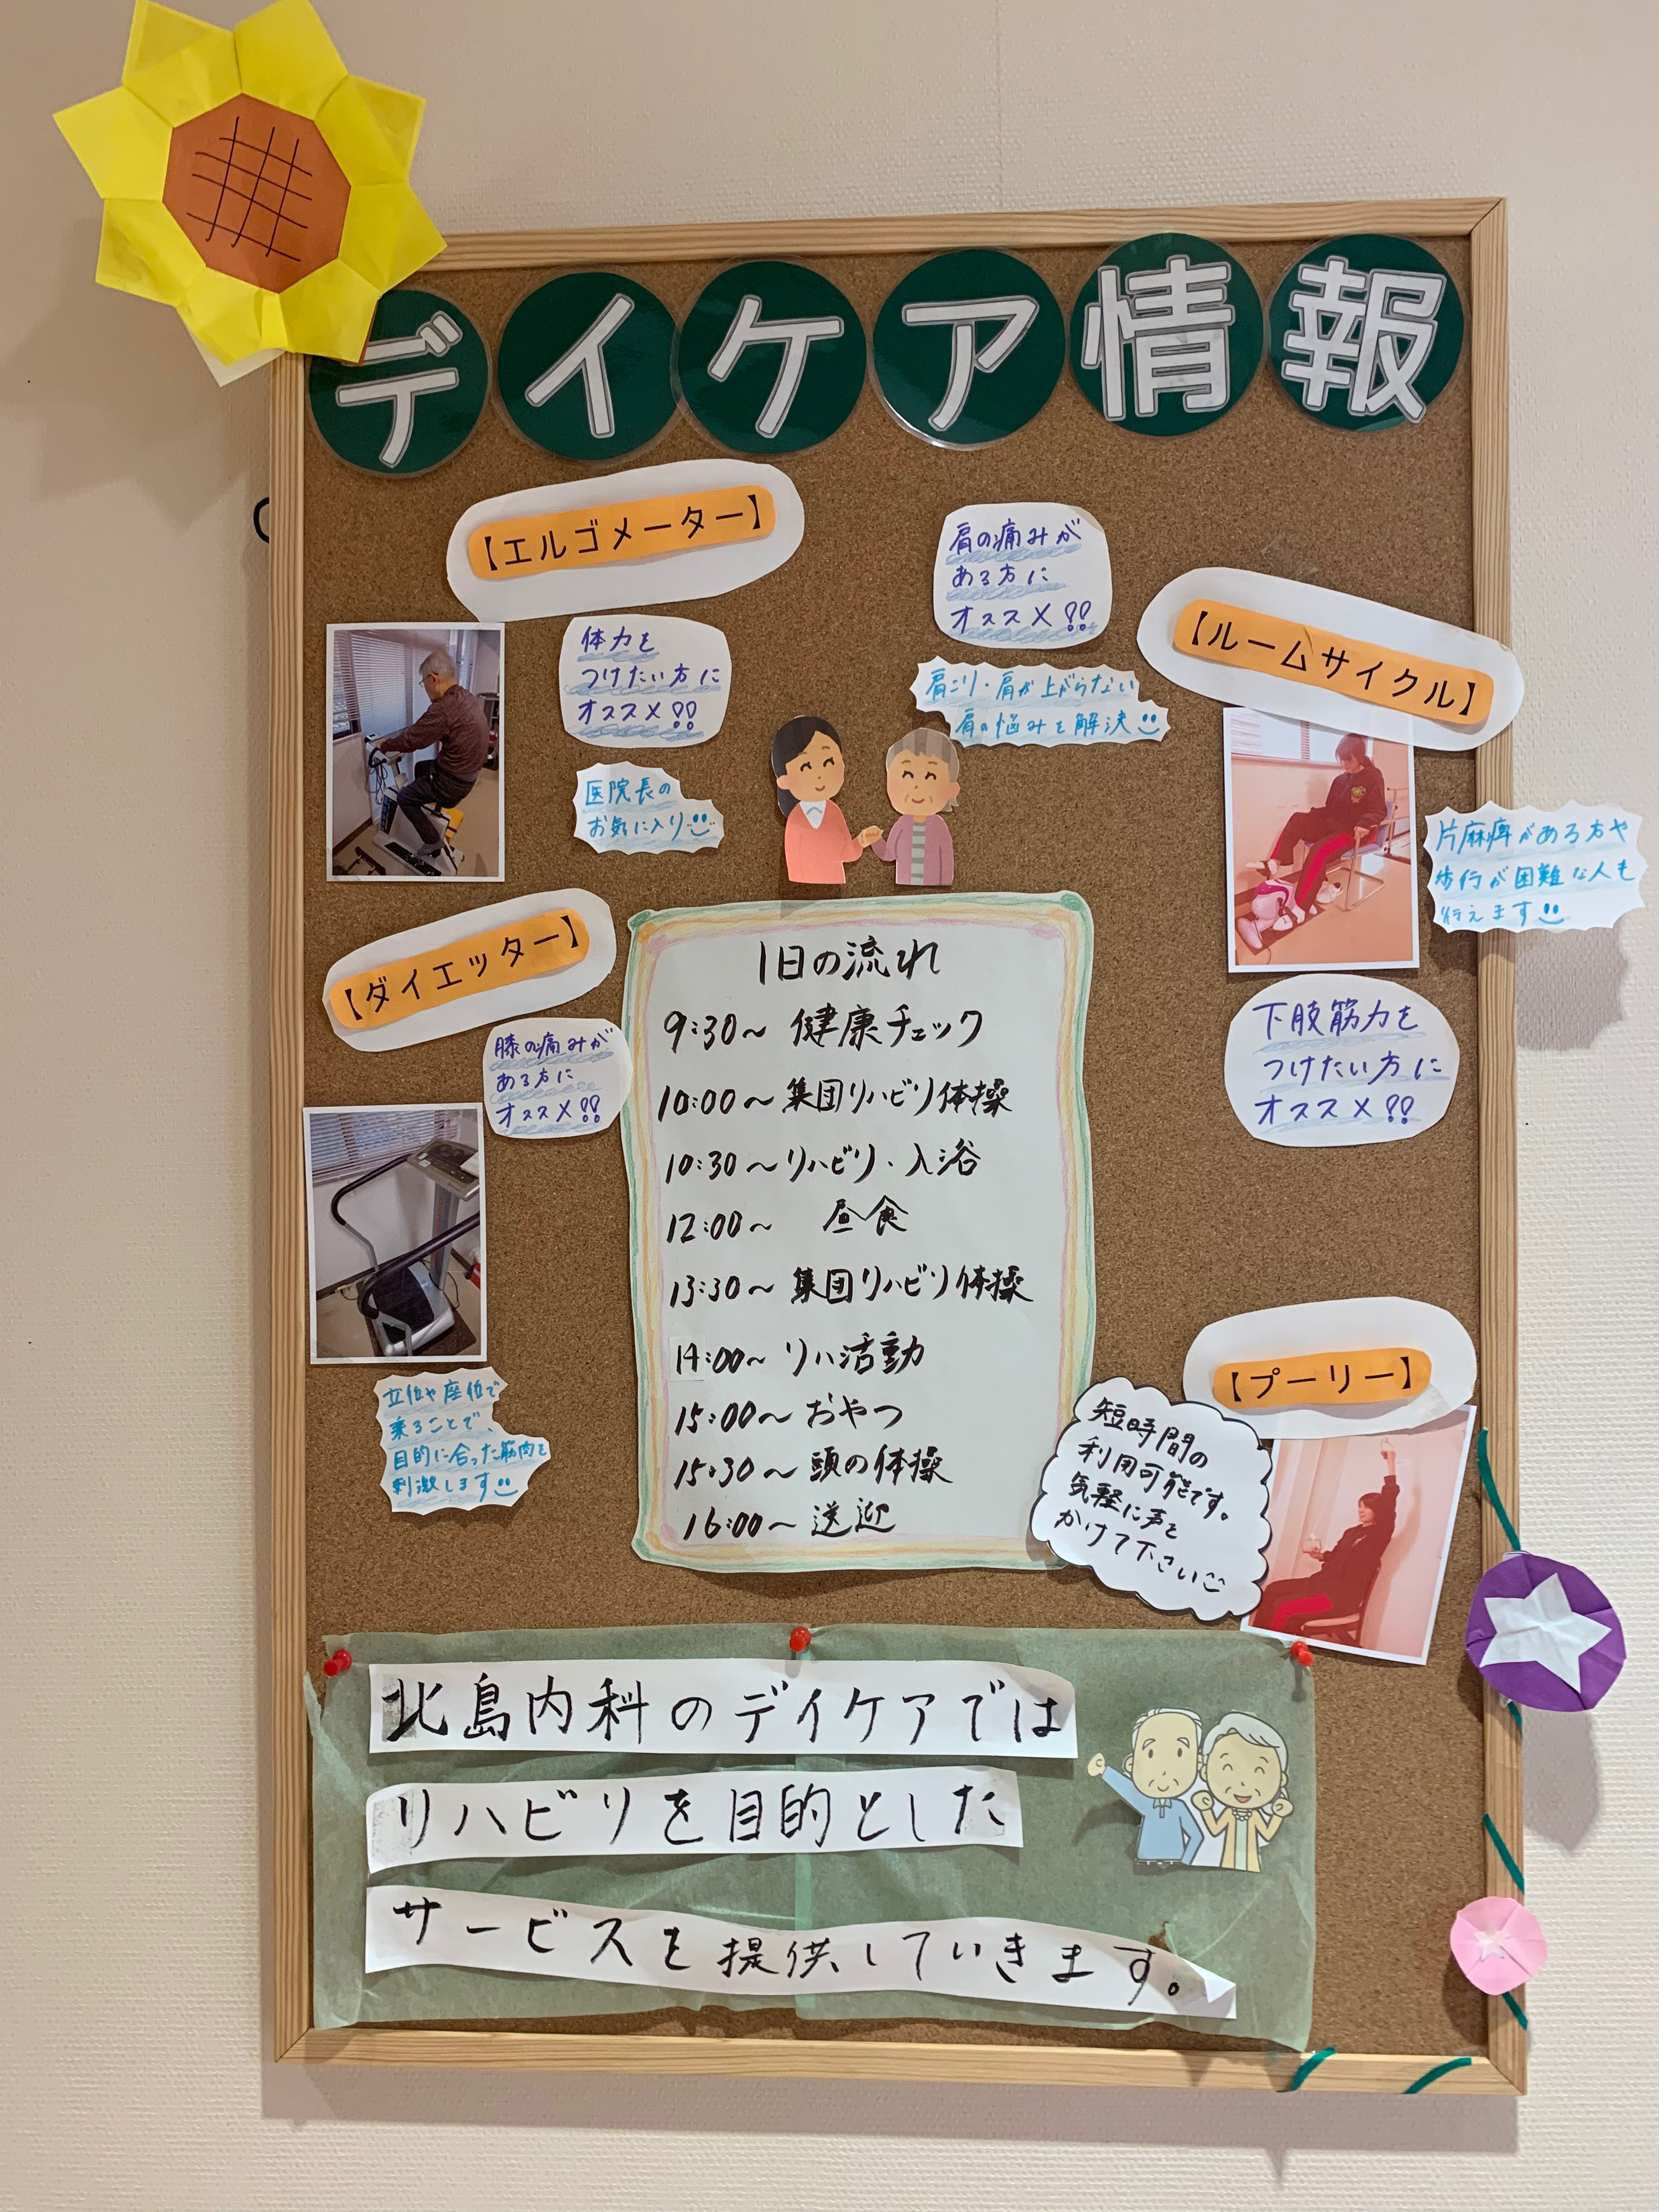 デイケア情報
【エルゴメーター】
体力を
つけたい方に
オススメ!!
医院長の
お気に入り
肩の痛みが
ある方に
オススメ!!
肩こり・肩が上がらない
肩の悩みを解決
【ルームサイクル】
片麻痺がある方や
歩行が困難な人も
行えます
下肢筋力を
つけたい方に
オススメ!!
【ダイエッター】
膝の痛みが
ある方に
オススメ!!
立位や座位で
乗ることで、
目的に合った筋肉を
刺激します
1日の流れ
9:30〜 健康チェック
10:00〜集団リハビリ体操
10:30〜リハビリ・入浴
12:00〜 昼食
13:30〜 集団リハビリ体操
14:00〜 リハ活動
15:00〜 おやつ
15:30〜 頭の体操
16:00〜 送迎
【プーリー】
短時間の
利用可能です。
気軽に声を
かけて下さい
北島内科のデイケアでは
リハビリを目的とした
サービスを提供していきます。